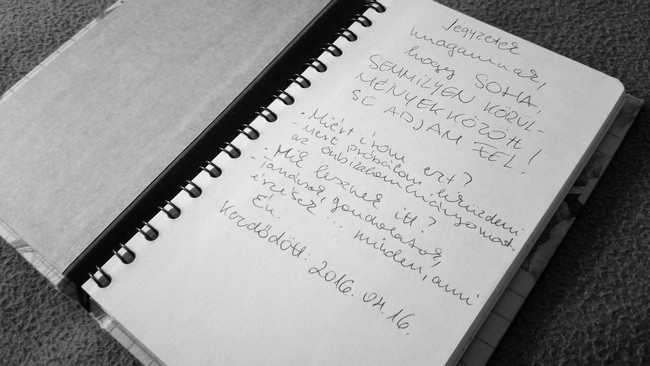 Jegyzetek
magamnak,
hogy SOHA,
SEMMILYEN KÖRÜL-
MÉNYEK KÖZÖTT
SE ADJAM FEL!
• Miért írom ezt?
- Mert próbálom leküzdeni
az önbizalomhiányomat.
• Mik lesznek itt?
- Tanácsok, gondolatok,
érzések ... minden, ami
Én.
Kezdődött: 2016. 04. 16.